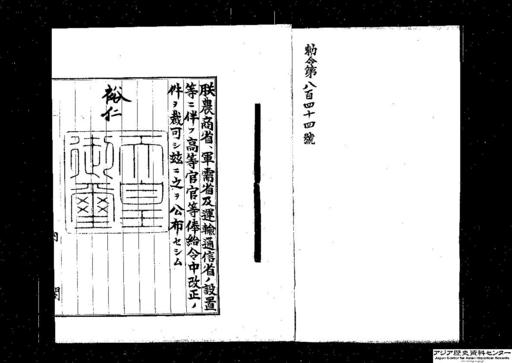 勅令第八百四十四號
朕農商省、軍需省及運輸通信省ノ設置
等ニ伴フ高等官官等俸給令中改正ノ
件ヲ裁可シ茲ニ之ヲ公布セシム
裕仁
天皇
御璽
内閣
アジア歴史資料センター
Japan Center for Asian Historical Records